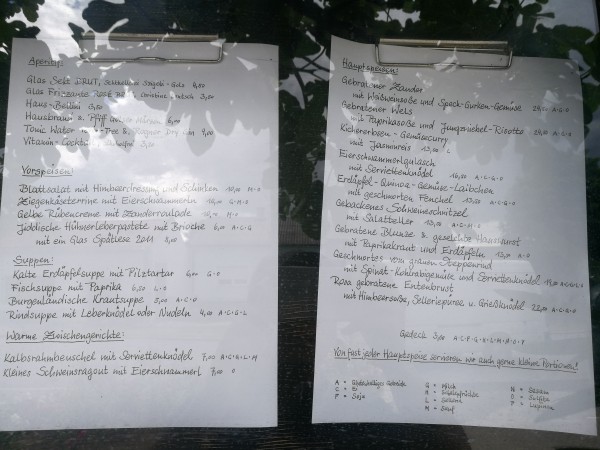 Aperitif:
Glas Sekt BRUT, Schlhuber
Glas Frizzante Rosé 3,00
Haus-Bellini 3,50
Hausbrand
Tonic Water Dry Gin 9,00
Vitamin-Cocktail
Vorspeisen:
Blattsalat mit Himbeerdressing und Schinken 10,00 M·O
Ziegenkäseterrine mit Eierschwammerln G·M·O
Gelbe Rübencreme mit Zanderroulade M·O
Jiddische Hühnerleberpastete mit Brioche 6,00 A·C·G
mit ein Glas Spätlese 2011 8,00
Suppen:
Kalte Erdäpfelsuppe mit Pilztartar 6,00 G·O
Fischsuppe mit Paprika 6,50 L·D
Burgenländische Krautsuppe 5,00 A·G·O
Rindsuppe mit Leberknödel oder Nudeln 4,00 A·C·G·L
Warme Zwischengerichte:
Kalbsrahmbeuschel mit Serviettenknödel 7,00 A·C·G·L·M
Kleines Schweinsragout mit Eierschwammerl 7,00 O
Hauptspeisen:
Gebratener Zander
mit Weißweinsoße und Speck-Gurken-Gemüse A·G·O
Gebratener Wels
mit Paprikasoße und Jungzwiebel-Risotto A·G·O
Kichererbsen-Gemüsecurry
mit Jasmin­reis 13,00 L
Eierschwammerlgulasch
mit Serviettenknödel 16,50 A·C·G·O
Erdäpfel-Quinoa-Gemüse-Laibchen
mit geschmortem Fenchel 13,50 A·C·G
Gebackenes Schweineschnitzel
mit Salatteller 13,50 A·C·G·M·O
Gebratene Blunze & geselchte Hauswurst
mit Paprikakraut und Erdäpfeln 13,50 A·O
Geschmortes vom grauen Steppenrind
mit Spinat-Kohlrabigemüse und Serviettenknödel A·C·G·L·O
Rosa gebratene Entenbrust
mit Himbeersoße, Selleriepüree u. Grießknödel 22,00 A·C·G·O
Gedeck 3,00
Von fast jeder Hauptspeise servieren wir auch gerne kleine Portionen!
A = Glutenhaltiges Getreide
C = Ei
F = Soja
G = Milch
H = Schalenfrüchte
L = Sellerie
M = Senf
N = Sesam
O = Sulfite
P = Lupinen